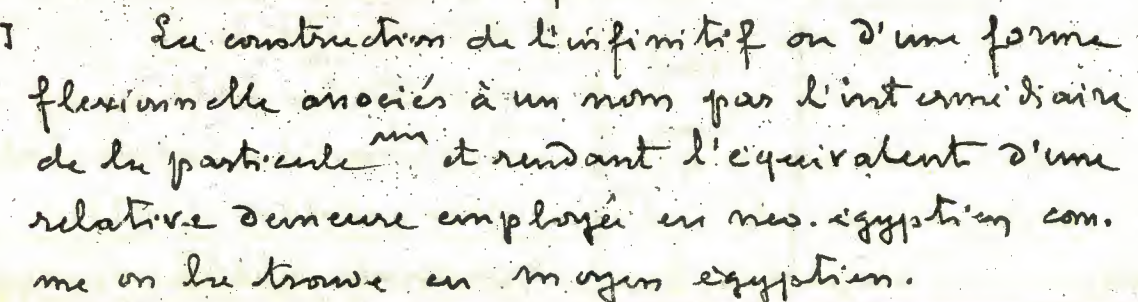 La construction de l'infinitif ou d'une forme
flexionnelle associés à un nom par l'intermédiaire
de la particule 𓈖 et rendant l'équivalent d'une
relative demeure employée en néo-égyptien com-
me on la trouve en moyen égyptien.